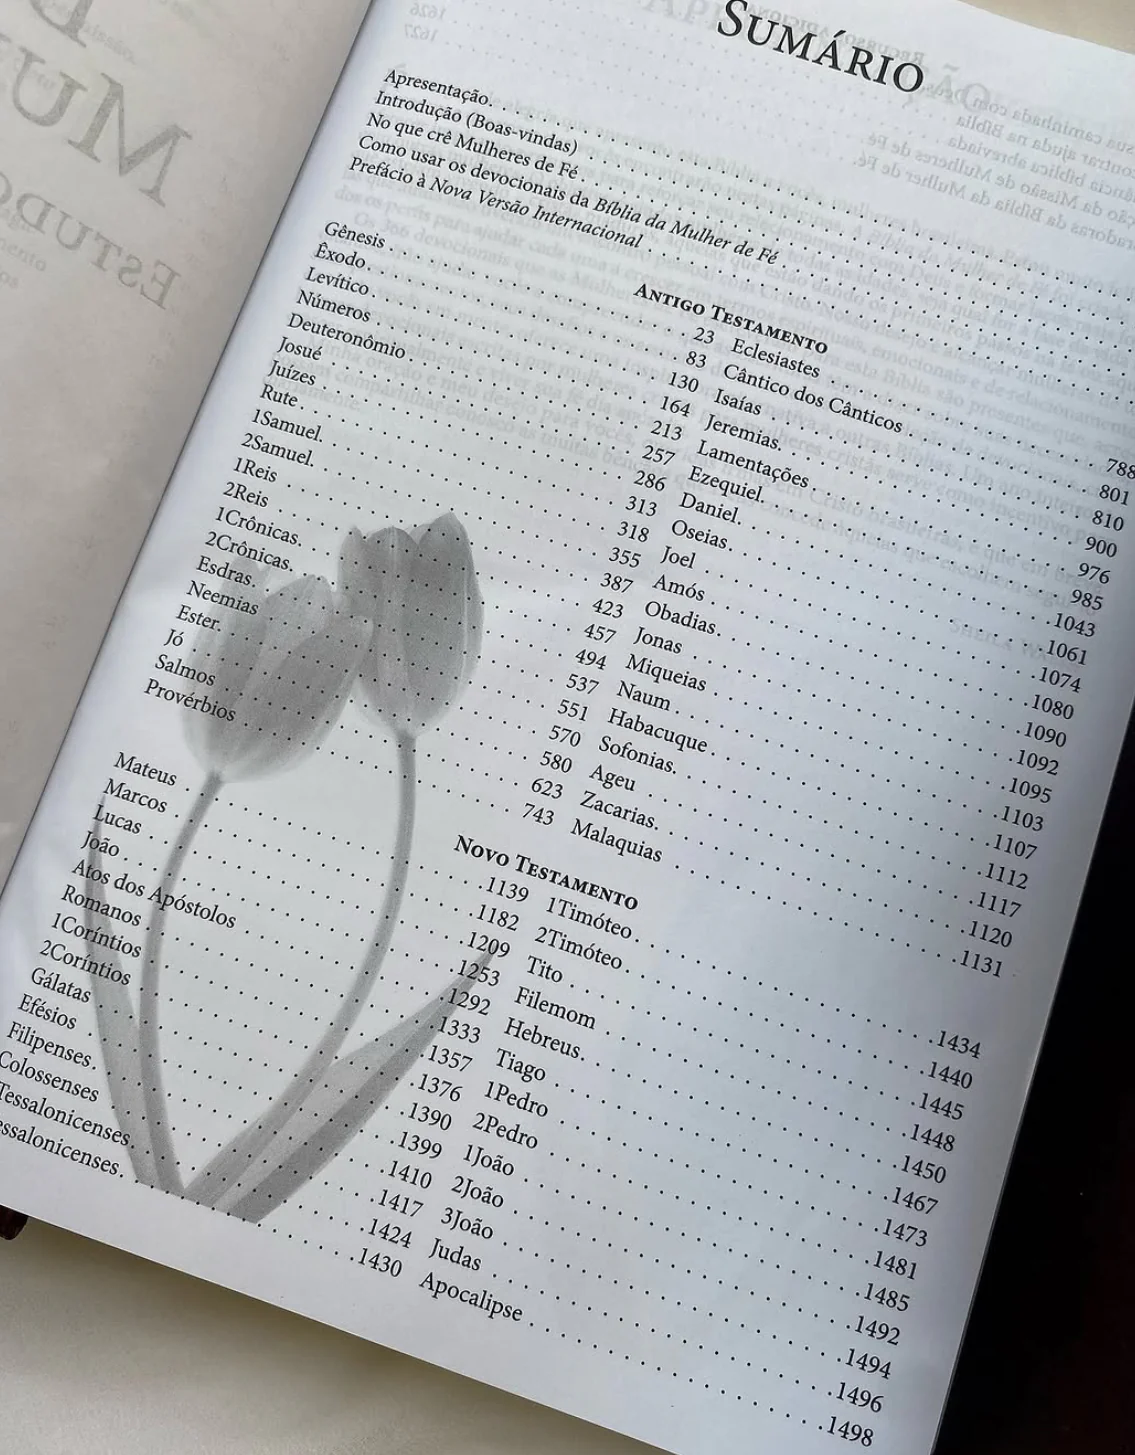 SUMÁRIO
Apresentação
Introdução (Boas-vindas)
No que crê Mulheres de Fé
Como usar os devocionais da Bíblia da Mulher de Fé
Prefácio à Nova Versão Internacional
ANTIGO TESTAMENTO
Gênesis 23
Êxodo 83
Levítico 130
Números 164
Deuteronômio 213
Josué 257
Juízes 286
Rute 313
1Samuel 318
2Samuel 355
1Reis 387
2Reis 423
1Crônicas 457
2Crônicas 494
Esdras 537
Neemias 551
Ester 570
Jó 580
Salmos 623
Provérbios 743
Eclesiastes 788
Cântico dos Cânticos 801
Isaías 810
Jeremias 900
Lamentações 976
Ezequiel 985
Daniel 1043
Oseias 1061
Joel 1074
Amós 1080
Obadias 1090
Jonas 1092
Miqueias 1095
Naum 1103
Habacuque 1107
Sofonias 1112
Ageu 1117
Zacarias 1120
Malaquias 1131
NOVO TESTAMENTO
Mateus 1139
Marcos 1182
Lucas 1209
João 1253
Atos dos Apóstolos 1292
Romanos 1333
1Coríntios 1357
2Coríntios 1376
Gálatas 1390
Efésios 1399
Filipenses 1410
Colossenses 1417
Tessalonicenses 1424
essalonicenses 1430
1Timóteo 1434
2Timóteo 1440
Tito 1445
Filemom 1448
Hebreus 1450
Tiago 1467
1Pedro 1473
2Pedro 1481
1João 1485
2João 1492
3João 1494
Judas 1496
Apocalipse 1498